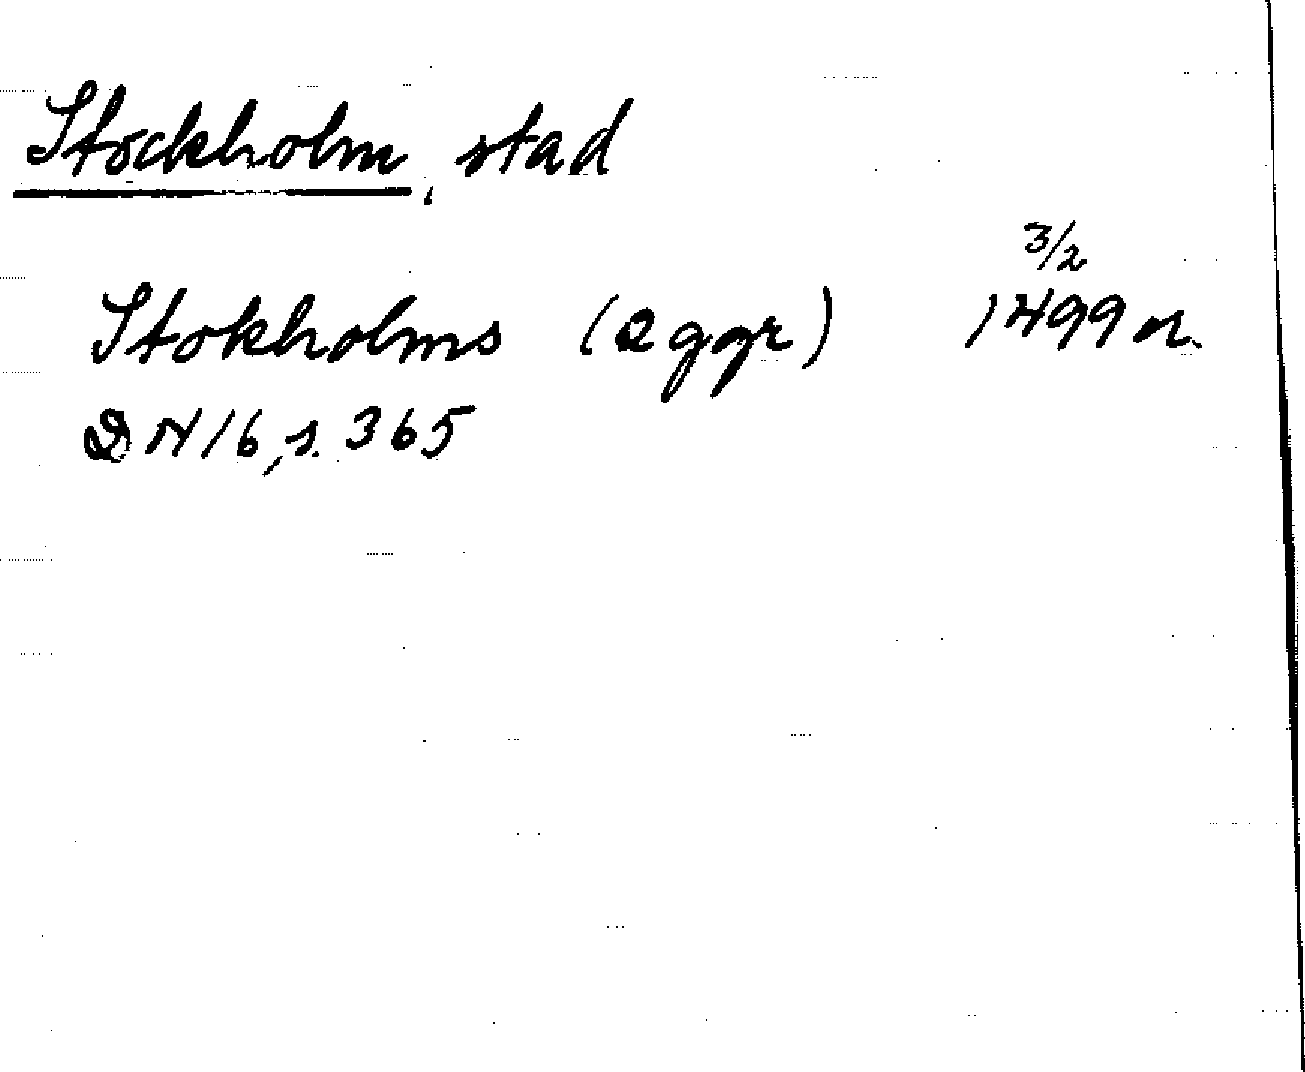 Stockholm, stad
3/2
Stokholms (2 ggr) 1499 or.
DN 16, s. 365